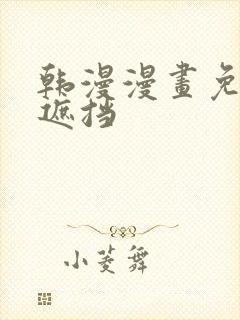 韩漫漫畫免
遮挡
小菱舞